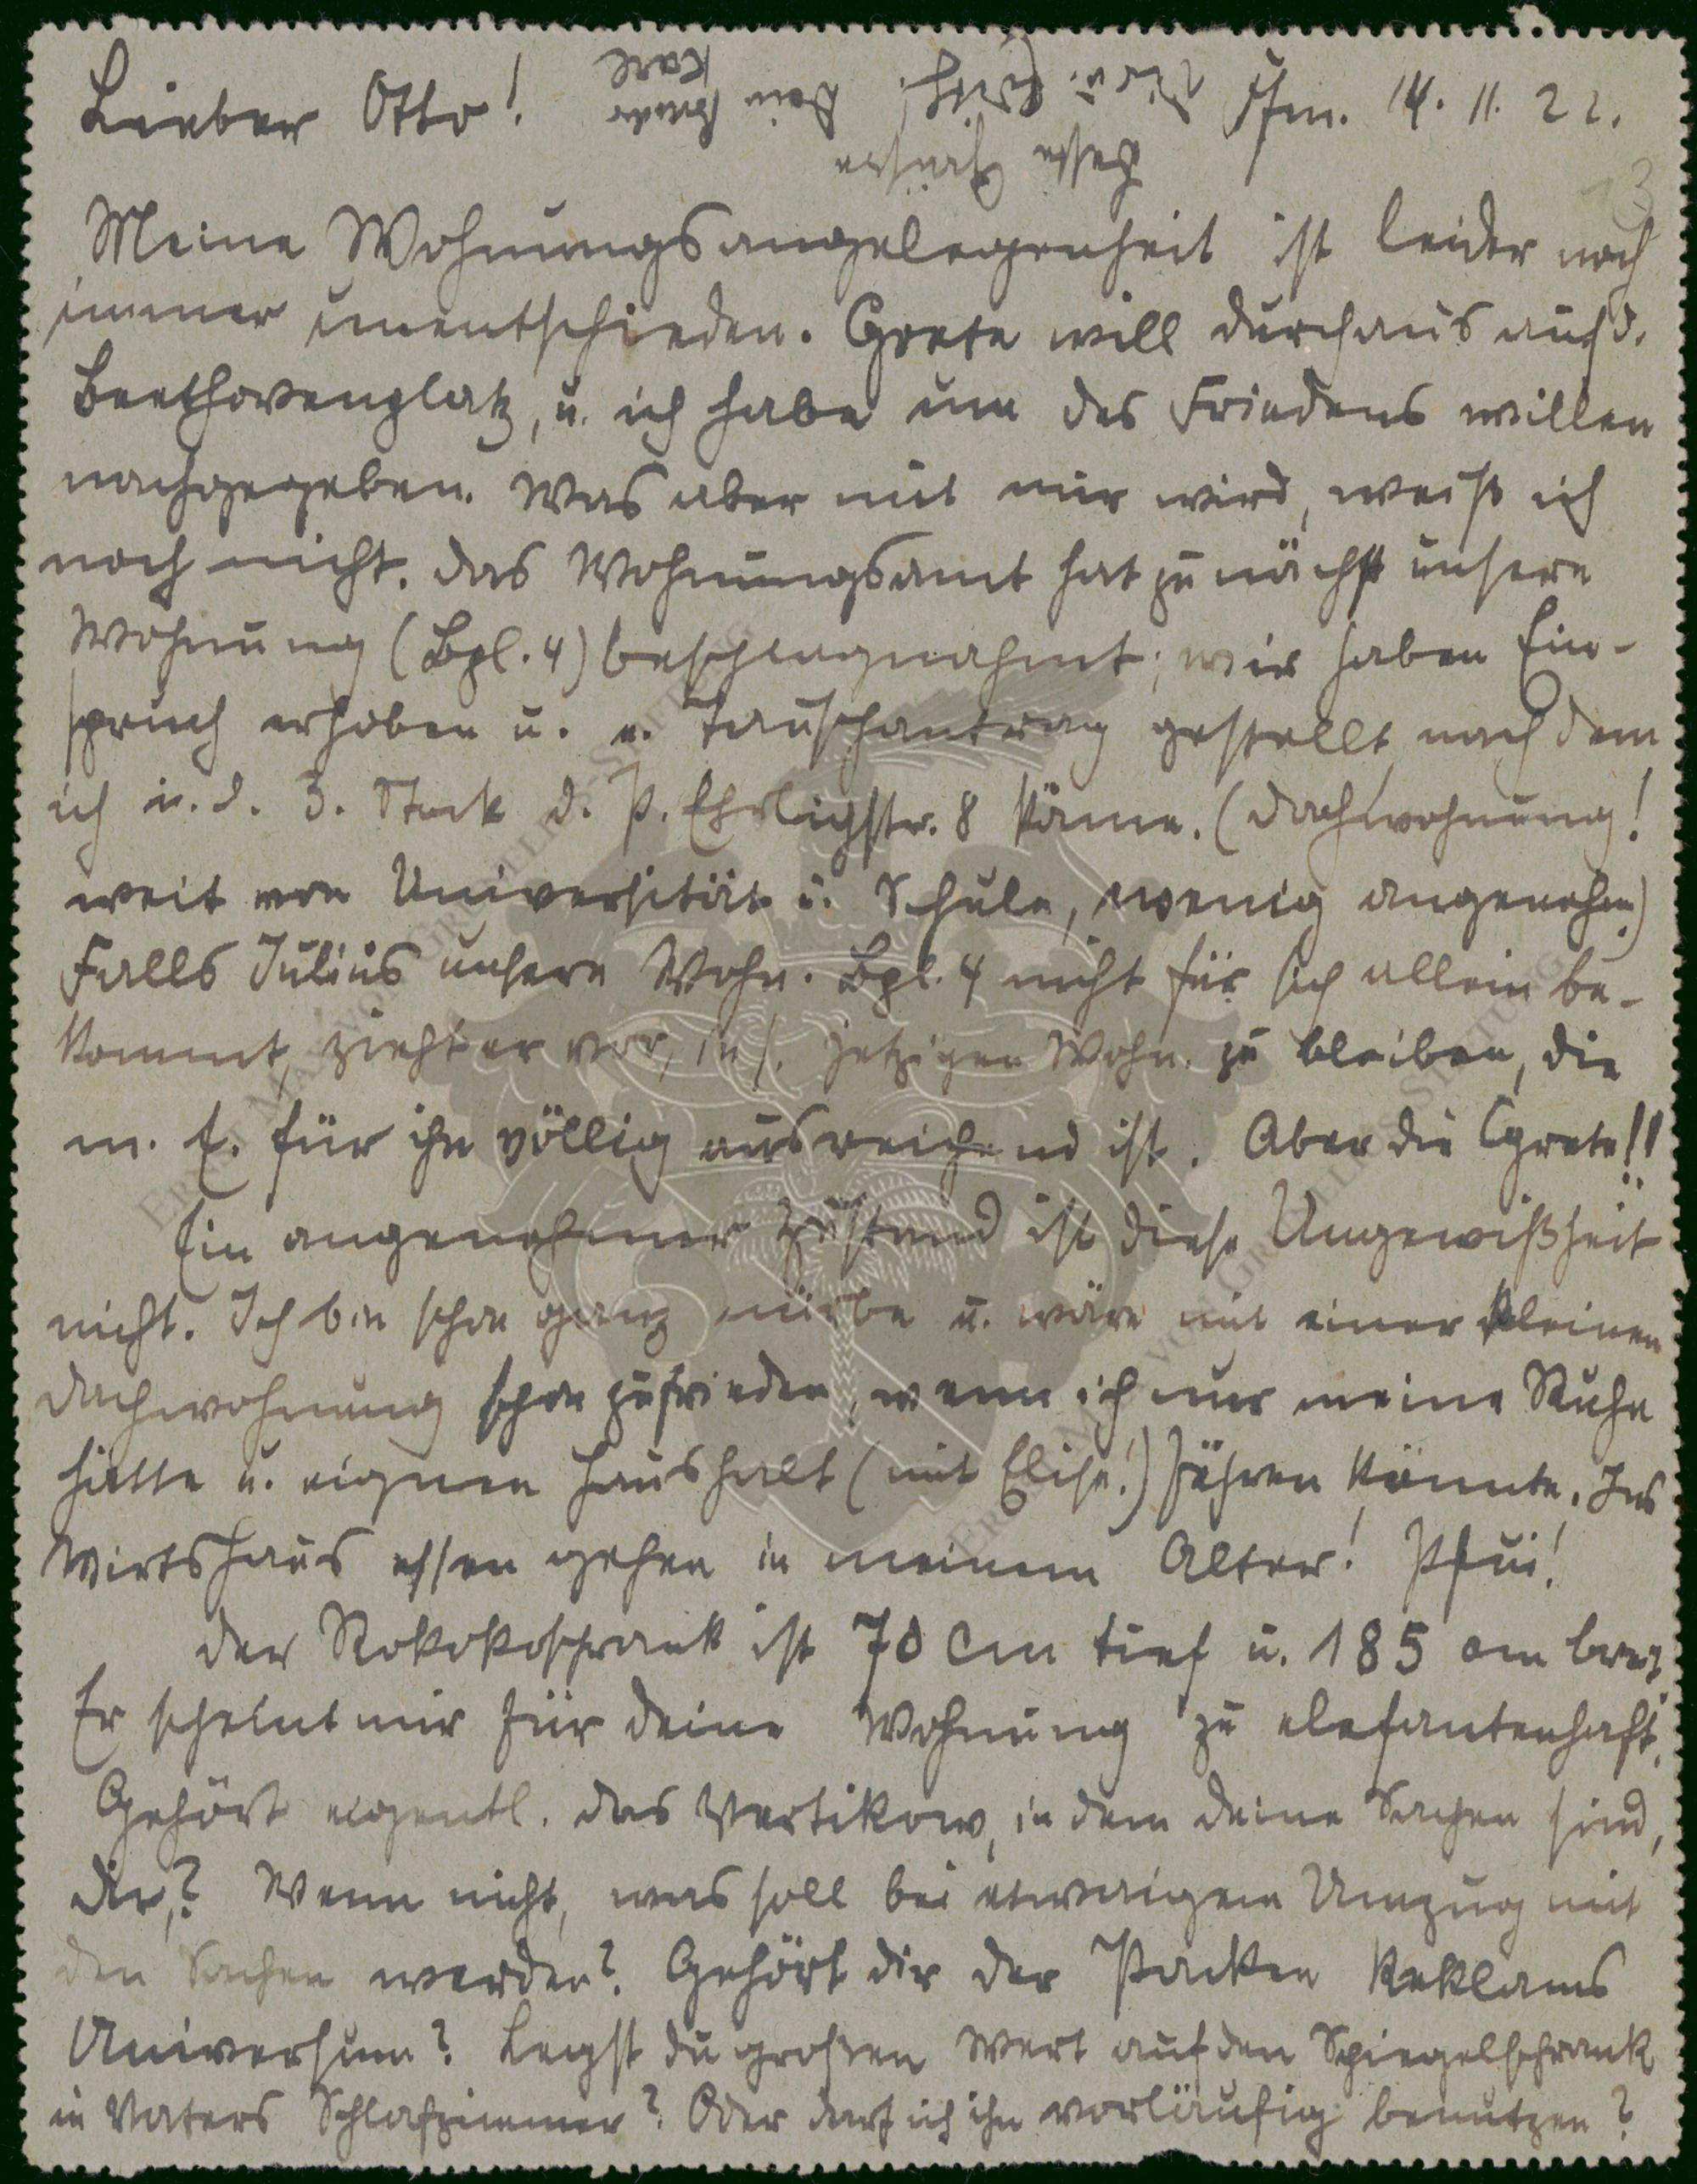 Lieber Otto! Ffm. 14. 11. 22.
Meine Wohnungsangelegenheit ist leider noch
immer unentschieden. Grete will durchaus auf d.
Beethovenplatz, u. ich habe um des Friedens willen
nachgegeben. Was aber mit mir wird, weiß ich
noch nicht. Das Wohnungsamt hat zunächst unsere
Wohnung (Bpl. 4) beschlagnahmt; wir haben Ein-
spruch erhoben u. e. Tauschantrag gestellt, nach dem
ich i. d. 3. Stock d. P. Ehrlichstr. 8 käme. (Dachwohnung!
weit von Universität u. Schule, wenig angenehm)
Falls Julius unsere Wohn. Bpl. 4 nicht für sich allein be-
kommt, zieht er vor, in s. jetzigen Wohn. zu bleiben, die
m. E. für ihn völlig ausreichend ist. Aber die Grete!!
Ein angenehmer Zustand ist diese Ungewißheit
nicht. Ich bin schon ganz mürbe u. wäre mit einer kleinen
Dachwohnung schon zufrieden, wenn ich nur meine Ruhe
hätte u. eignen Haushalt (mit Elise!) führen könnte. Ins
Wirtshaus essen gehen in meinem Alter! Pfui!
Der Rokokoschrank ist 70 cm tief u. 185 cm breit.
Er scheint mir für deine Wohnung zu elefantenhaft.
Gehört eigentl. das Vertikow, in dem deine Sachen sind,
dir? Wenn nicht, was soll bei etwaigem Umzug mit
den Sachen werden? Gehört dir der Packen Reklams
Universum? Legst du großen Wert auf den Spiegelschrank
in Vaters Schlafzimmer? Oder darf ich ihn vorläufig benutzen?
Beste Grüße
Dein Bruder
Karl
Ernst Max von Grunelius-Stiftung